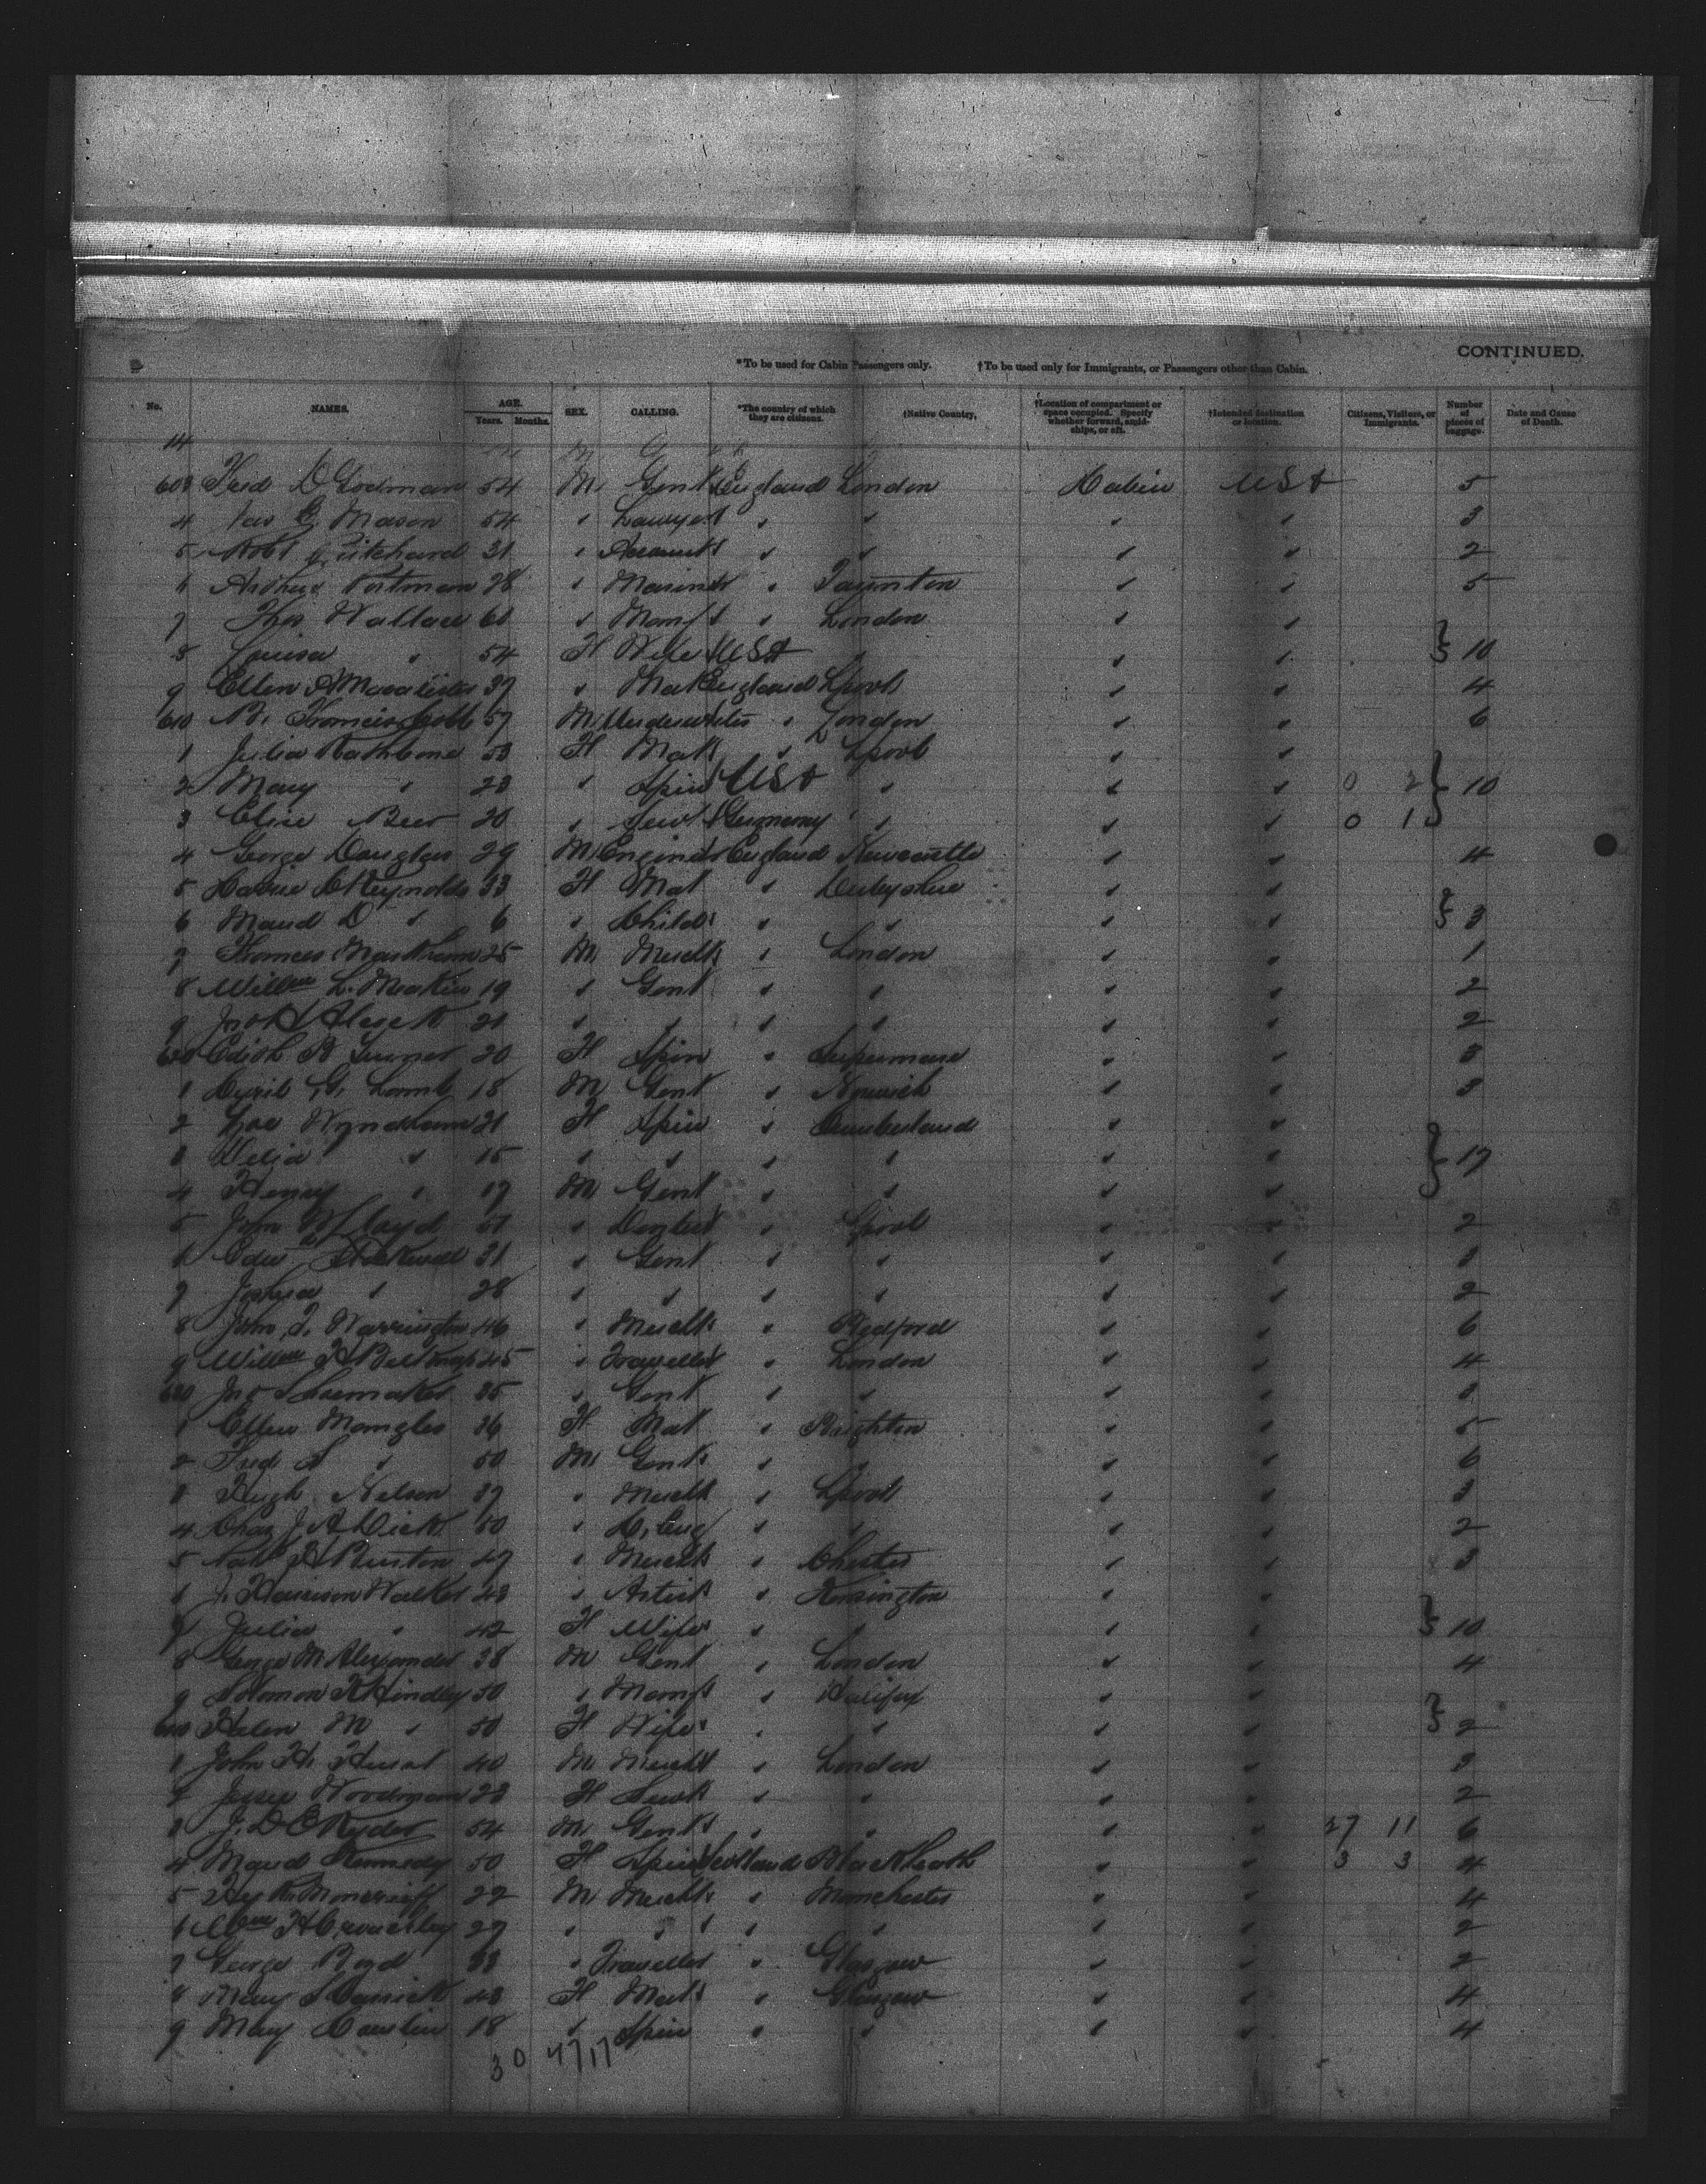 CONTINUED.
*To be used for Cabin Passengers only. †To be used only for Immigrants, or Passengers other than Cabin.
No. NAMES. AGE. Years. Months. SEX. CALLING. *The country of which they are citizens. †Native Country, †Location of compartment or space occupied. Specify whether forward, amidships, or aft. †Intended destination or location. Citizens, Visitors, or Immigrants. Number of pieces of baggage. Date and Cause of Death.
14
603 Fred D Godman 54 M Gent England London Cabin USA 5
4 Jas Mason 54 " Lawyer " " " " 3
5 Robt Pritchard 31 " Accountt " " " " 2
6 Arthur Portman 28 " " Taunton " " 5
7 Thos Wallace 60 " Manf " London " "
8 Louisa " 54 F Wife USA " " " } 10
9 Ellen 37 " Mat England Lpool " " 4
610 Francis Cobb 57 M Underwriter " London " " 6
1 Julia Rathbone 53 F Mat " Lpool " "
2 Mary " 23 " Spin USA " " " 0 2 } 10
3 Elise Beer 20 " Servt Germany " " " 0 1
4 George Douglas 29 M Engineer England Newcastle " " 4
5 Reynolds 33 F Mat " Derbyshire " "
6 Maud D " 6 " Child " " " " } 3
7 Francis Markham 25 M Mercht " London " " 1
8 Willm L. Meakin 19 " Gent " " " " 2
9 Jno H 21 " " " " " " 2
620 Edith B Turner 20 F Spin " " " 3
1 Cyril G. Lamb 18 M Gent " Norwich " " 3
2 Zoe Wyndham 21 F Spin " Cumberland " "
3 Delia " 15 " " " " " " } 17
4 Henry " 17 M Gent " " " "
5 John Lloyd 51 " " Lpool " " 2
6 Edwd 31 " Gent " " " " 3
7 Joshua " 28 " " " " " " 2
8 John J. Warrington 46 " Mercht " Bedford " " 6
9 Willm H Belknap 45 " Traveller " London " " 4
630 Jno Shoemaker 35 " Gent " " " " 3
1 Ellen Mangles 36 F Mat " Brighton " " 5
2 Fred S " 50 M Gent " " " " 6
3 Hugh Nelson 37 " Mercht " Lpool " " 3
4 Chas J. A Dick 50 " C. Eng " " " " 2
5 Nathl H Burton 47 " Mercht " Chester " " 3
6 J. Harrison Walker 43 " Artist " Kensington " "
7 Julia " 42 F Wife " " " " } 10
8 George M Alexander 38 M Gent " London " " 4
9 Solomon K Hindley 50 " Manf " Halifax " "
640 Helen M " 50 F Wife " " " " } 2
1 John H. Hurst 40 M Mercht " London " " 3
2 Jessie Woodman 23 F Servt " " " " 2
3 J. D C Ryder 54 M Gent " " " " 27 11 6
4 Maud Kennedy 50 F Spin Scotland Blackheath " " 3 3 4
5 Moncrieff 22 M Mercht " Manchester " " 4
6 Wm H 27 " " " " " " 2
7 George Boyd 33 " Traveller " Glasgow " " 2
8 Mary 43 F Mat " Glasgow " " 4
9 May 18 " Spin " " " " 4
30 4717